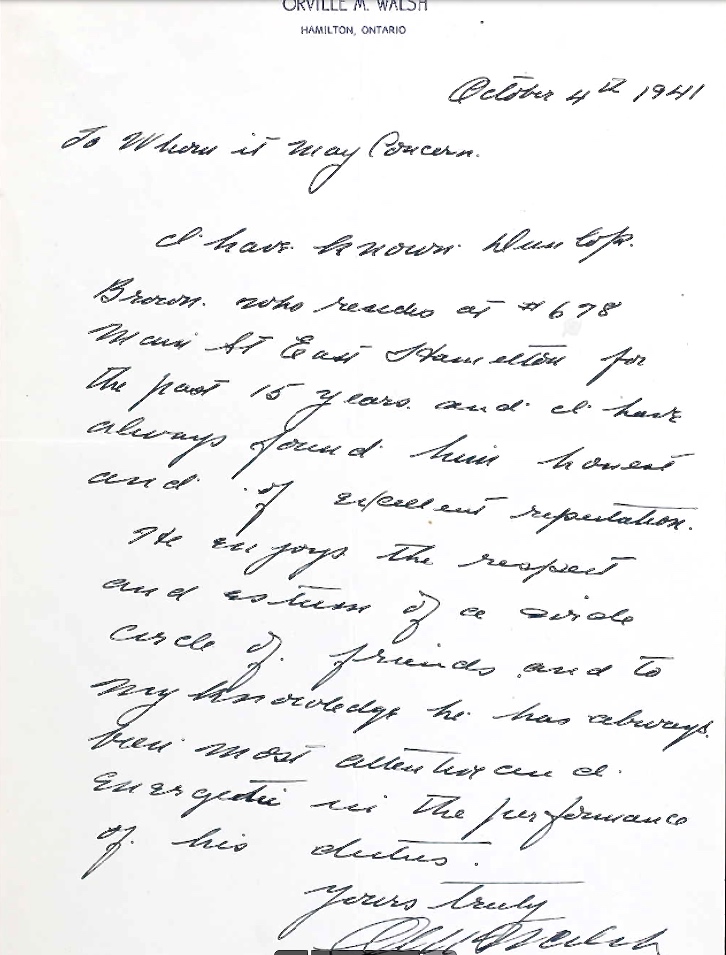 ORVILLE M. WALSH
HAMILTON, ONTARIO
October 4th 1941
To Whom it may Concern.
I have known Dunlop.
Brown. who resides at #678
Main St East Hamilton for
the past 15 years. and I have
always found him honest
and of excellent reputation.
He enjoys the respect
and esteem of a wide
circle of friends and to
my knowledge he has always
been most attentive and
energetic in the performance
of his duties.
Yours truly
O M Walsh